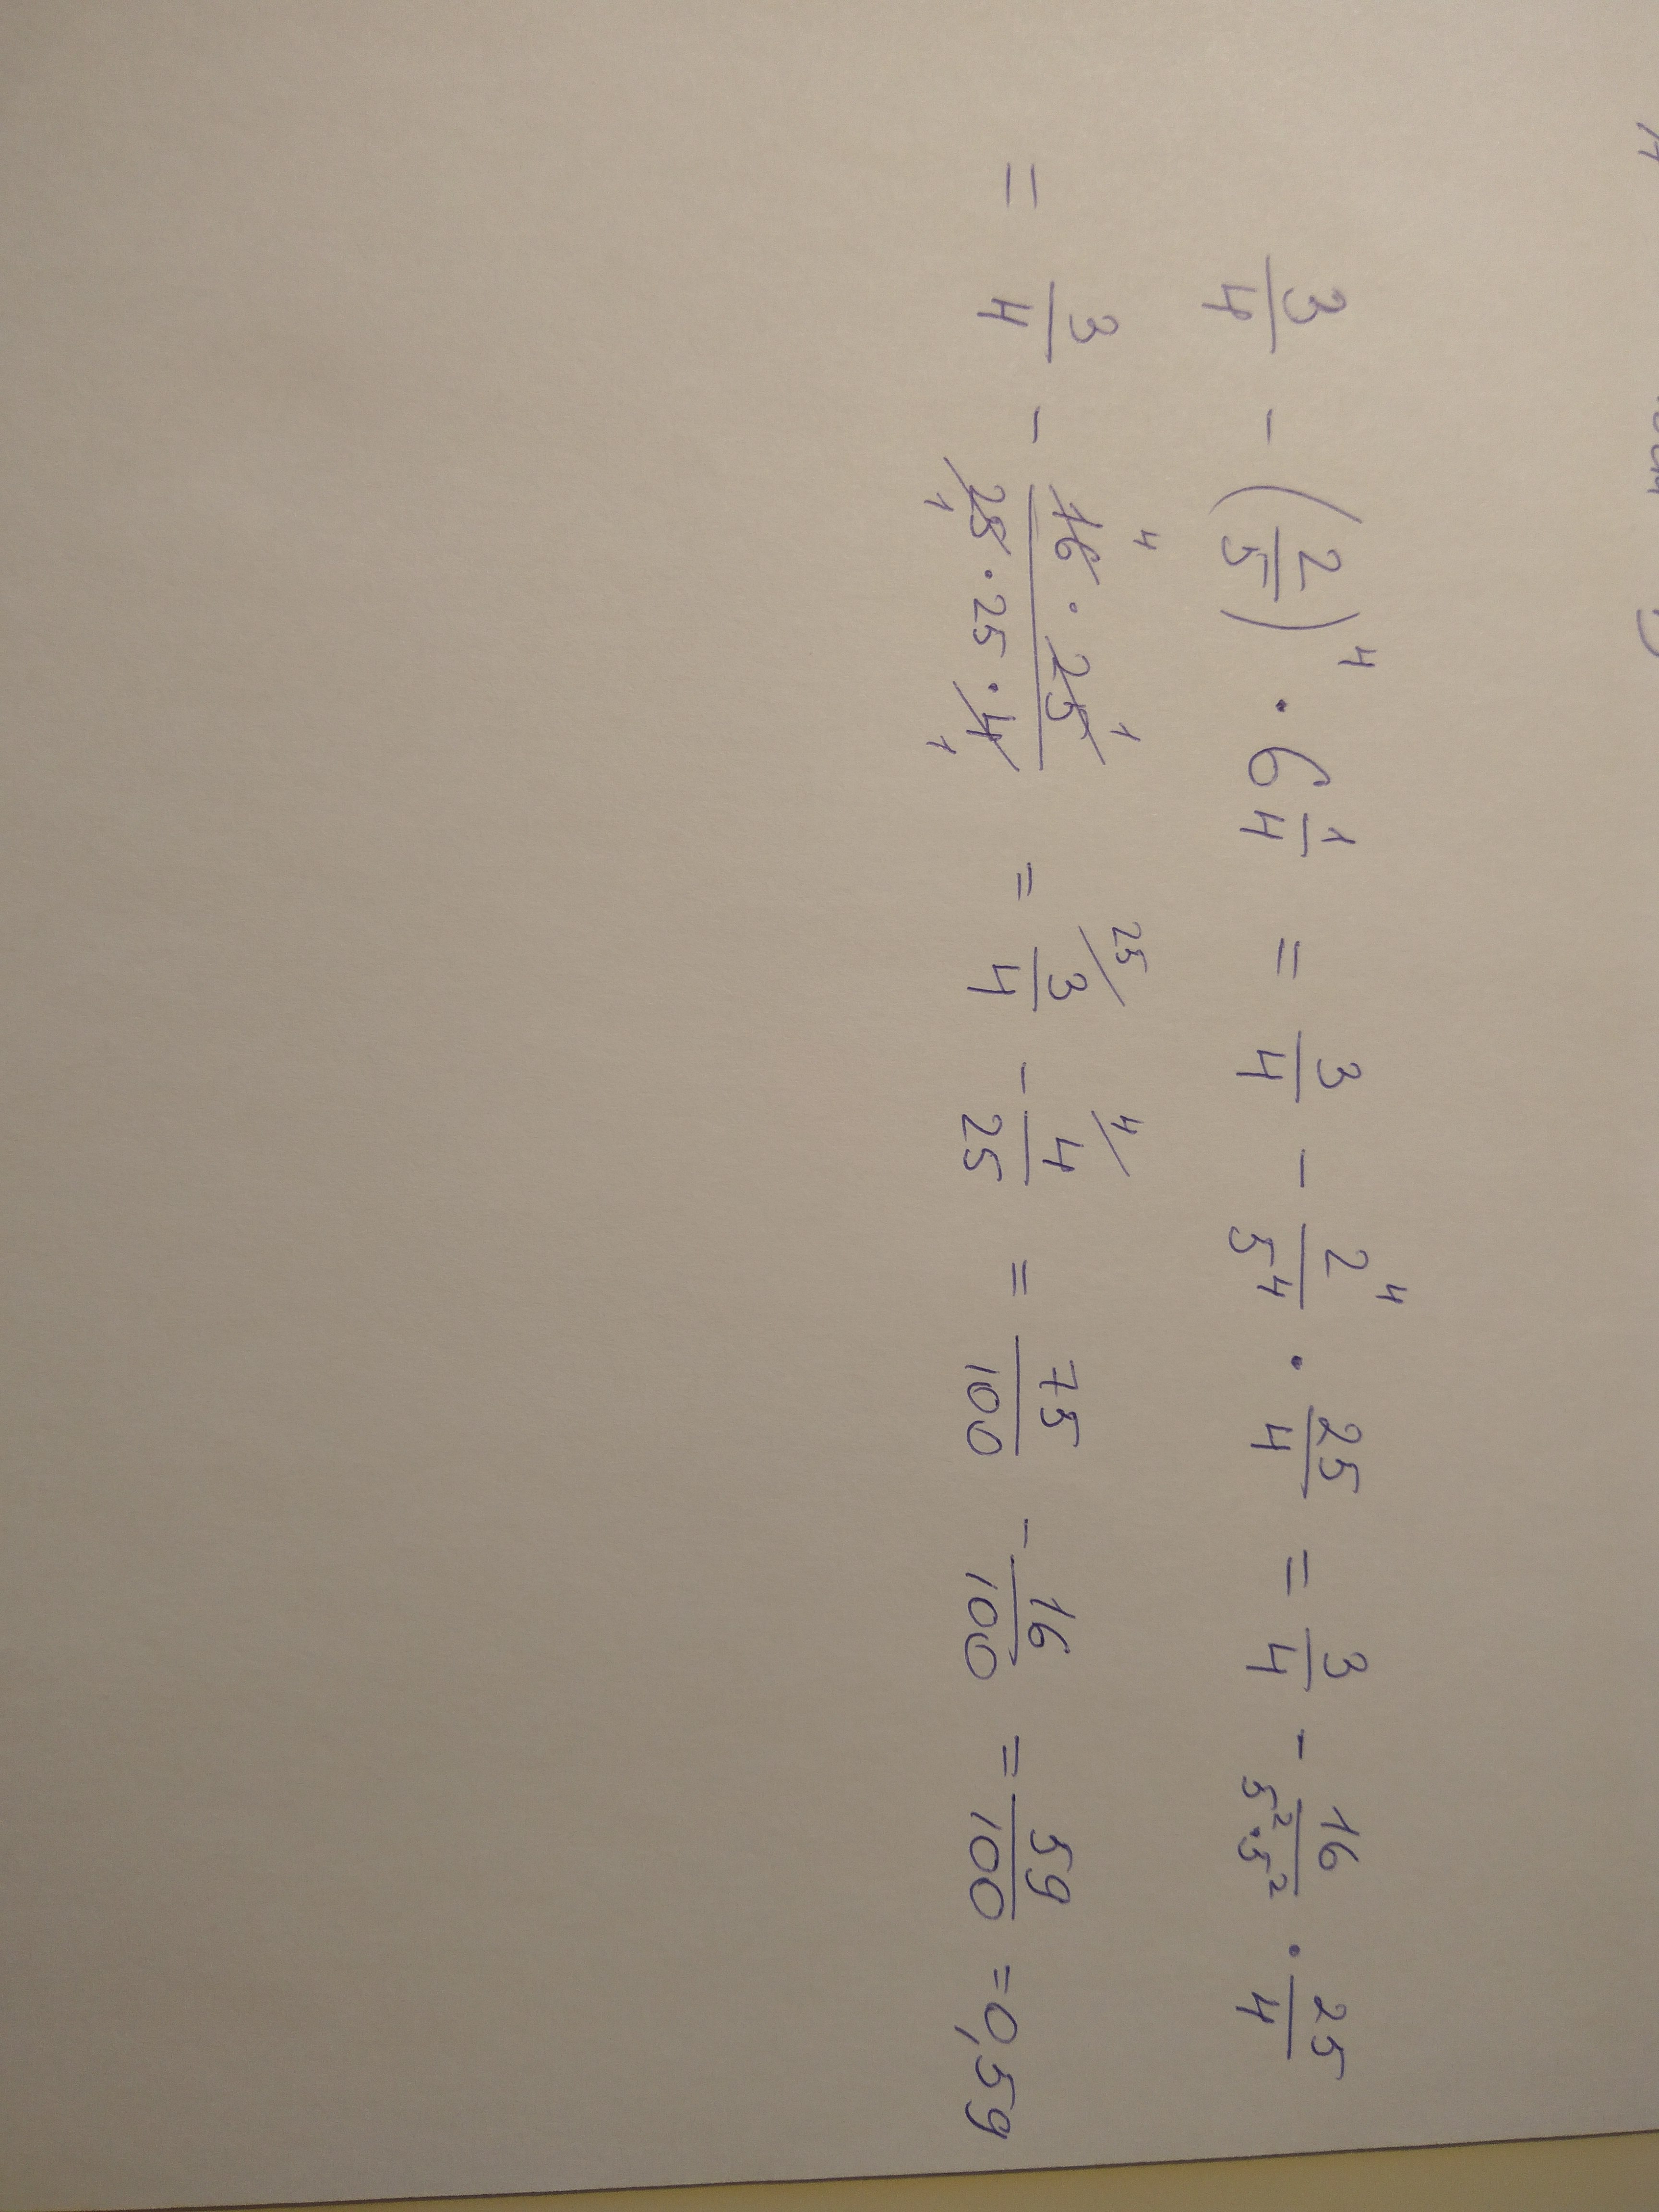 3/4 - (2/5)^4 · 6 1/4 = 3/4 - 2^4/5^4 · 25/4 = 3/4 - 16/(5^2·5^2) · 25/4
= 3/4 - (16 · 25)/(25 · 25 · 4) 4 1 1 1 = 25/ 3/4 - 4/ 4/25 = 75/100 - 16/100 = 59/100 = 0,59